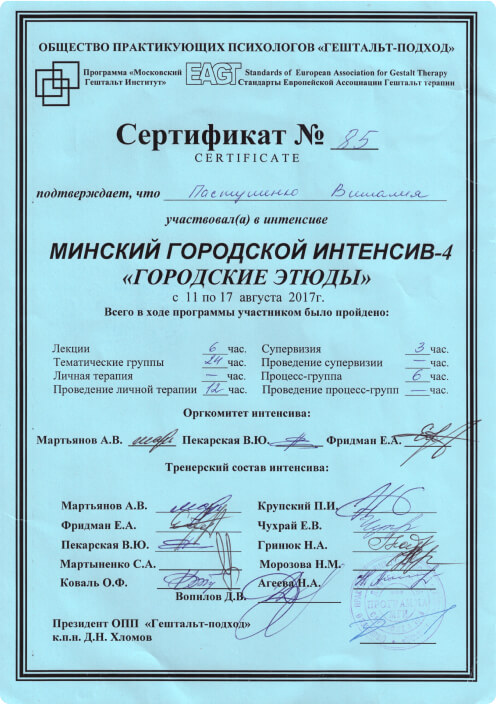 ОБЩЕСТВО ПРАКТИКУЮЩИХ ПСИХОЛОГОВ «ГЕШТАЛЬТ-ПОДХОД»
Программа «Московский Гештальт Институт»
EAGT
Standards of European Association for Gestalt Therapy
Стандарты Европейской Ассоциации Гештальт терапии
Сертификат № 85
CERTIFICATE
подтверждает, что Пастушенко Виталия
участвовал(а) в интенсиве
МИНСКИЙ ГОРОДСКОЙ ИНТЕНСИВ-4
«ГОРОДСКИЕ ЭТЮДЫ»
с 11 по 17 августа 2017г.
Всего в ходе программы участником было пройдено:
Лекции 6 час. Супервизия 3 час.
Тематические группы 24 час. Проведение супервизии — час.
Личная терапия — час. Процесс-группа 6 час.
Проведение личной терапии 12 час. Проведение процесс-групп — час.
Оргкомитет интенсива:
Мартьянов А.В. Пекарская В.Ю. Фридман Е.А.
Тренерский состав интенсива:
Мартьянов А.В. Крупский П.И.
Фридман Е.А. Чухрай Е.В.
Пекарская В.Ю. Гринюк Н.А.
Мартыненко С.А. Морозова Н.М.
Коваль О.Ф. Агеева Н.А.
Вопилов Д.В.
Президент ОПП «Гештальт-подход»
к.п.н. Д.Н. Хломов